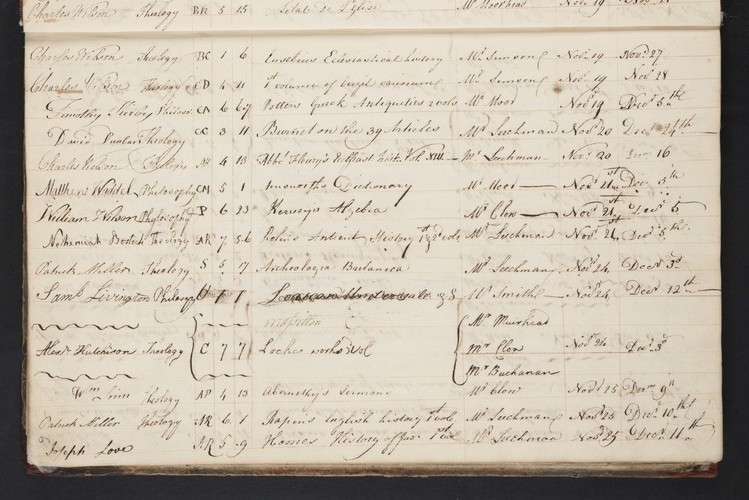 Charles Wilson Theology BR 5 15 Mr Moorhead Novr 19
Charles Wilson Theology BC 1 6 Eusebius Ecclesiastical history Mr Simson Novr 19 Novr 27
Charles Wilson Theology CD 4 11 1st volume of virgil variorum Mr Simson Novr 19 Nov 28
Timothy CA 6 6,7 Potters Greek Antiquities 2 vols Mr Moor Novr 19 Decr 5th
David Dunlar Theology CC 3 11 Burnet on the 39 Articles Mr Leechman Novr 20 Decr 24th
Charles Wilson Theology AR 4 13 Abbé Vol. XIII Mr Leechman Novr 20 16
Matthew Philosophy CM 5 1 Ainsworths Dictionary Mr Moor Novr 21st Decr 5th
William Wilson Phylosophy P 6 23 Kerseys Algebra Mr Clow Novr 21st Decr 5
Nathaniel Bostick Theology AR 7 5.6 Rolins Antient History 1st & 2d vols Mr Leechman Novr 21st Decr 5th
Patrick Miller Theology S 5 7 Archeologia Britanica Mr Leechman Novr 24 Decr 3d
Saml Livington Philosy Mr Smith Novr 24 Decr 12th
Mr Muirhead
Alexr Hutchison Theology C 7 7 Lockes works 3 Vol Mr Clow Novr 24 Decr 3d
Mr Buchanan
Wm Linn Theology AP 4 13 Abernethy's Sermons Mr Clow Novr 25 Decm 9th
Patrick Miller Theology AR 6. 1 Rapins English history 1st vol Mr Leechman Novr 25 Decr 10th
Joseph Love AR 5 9 Homes History 1st Vol Mr Leechman Novr 25 Decr 11th